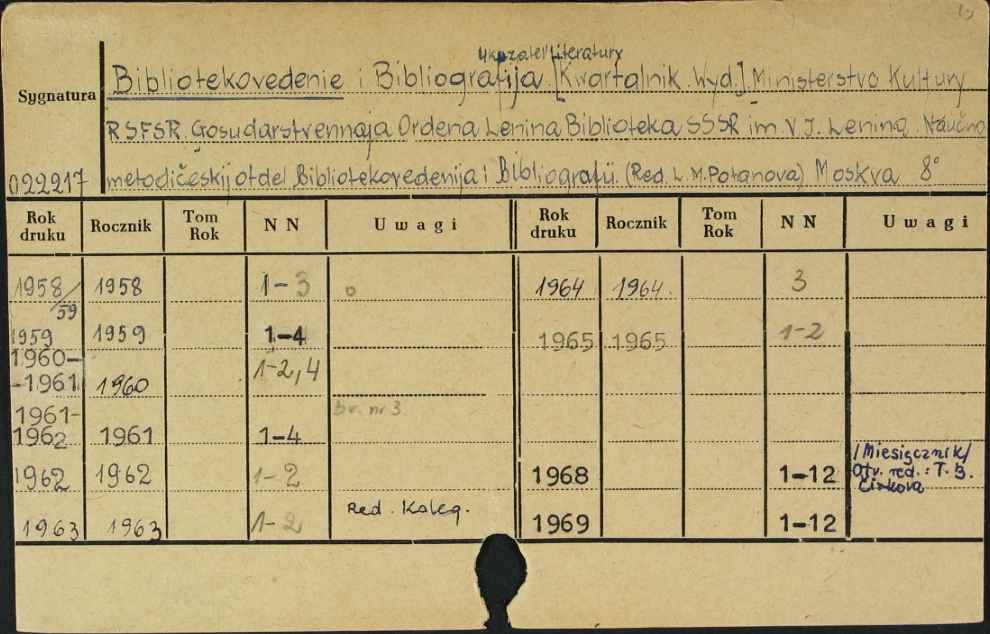 Ukazatel' literatury
Bibliotekovedenie i Bibliografija. [Kwartalnik. Wyd.] Ministerstvo Kultury
Sygnatura
RSFSR. Gosudarstvennaja Ordena Lenina Biblioteka SSSR im. V. I. Lenina. Naučno
092217 metodičeskij otdel Bibliotekovedenija i Bibliografii. (Red. L. M. Potanova) Moskva 8°
Rok druku Rocznik Tom Rok NN Uwagi Rok druku Rocznik Tom Rok NN Uwagi
1958/59 1958 1-3 1964 1964. 3
1959 1959 1-4 1965 1965 1-2
1960-
-1961 1960 1-2,4
br. nr 3
1961-
1962 1961 1-4
1962 1962 1-2 1968 1-12 /Miesięcznik/
Otv. red.: T. B.
Čirkova
1963 1963 1-2 Red. Koleg. 1969 1-12